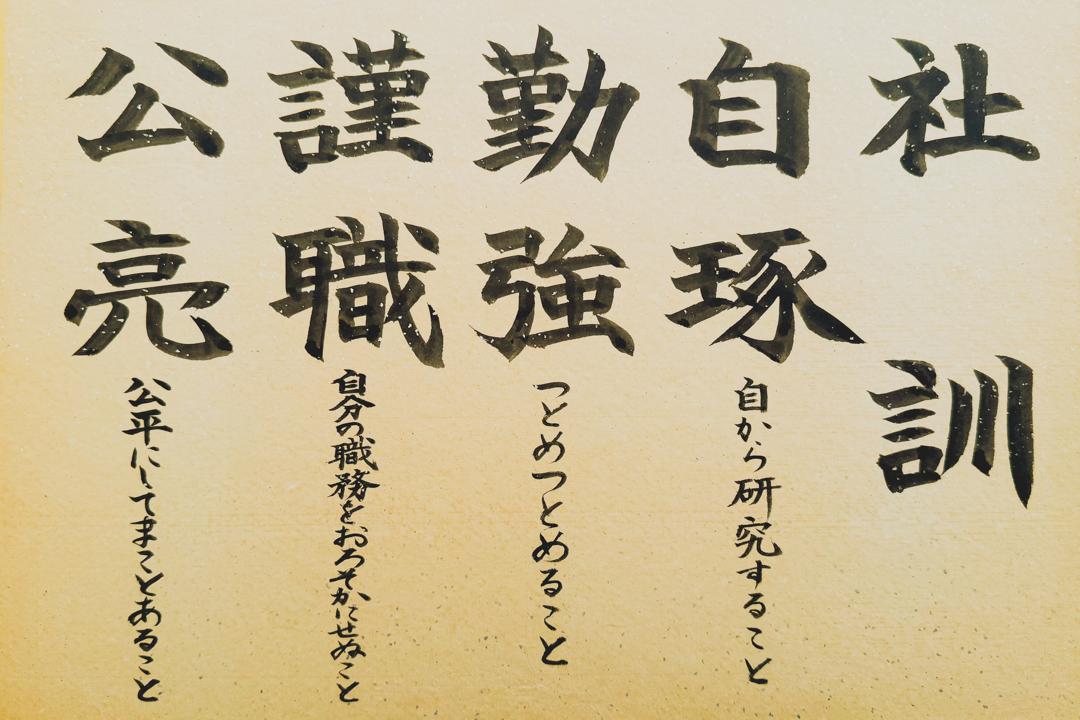 社訓
自琢
自から研究すること
勤強
つとめつとめること
謹職
自分の職務をおろそかにせぬこと
公亮
公平にしてまことあること